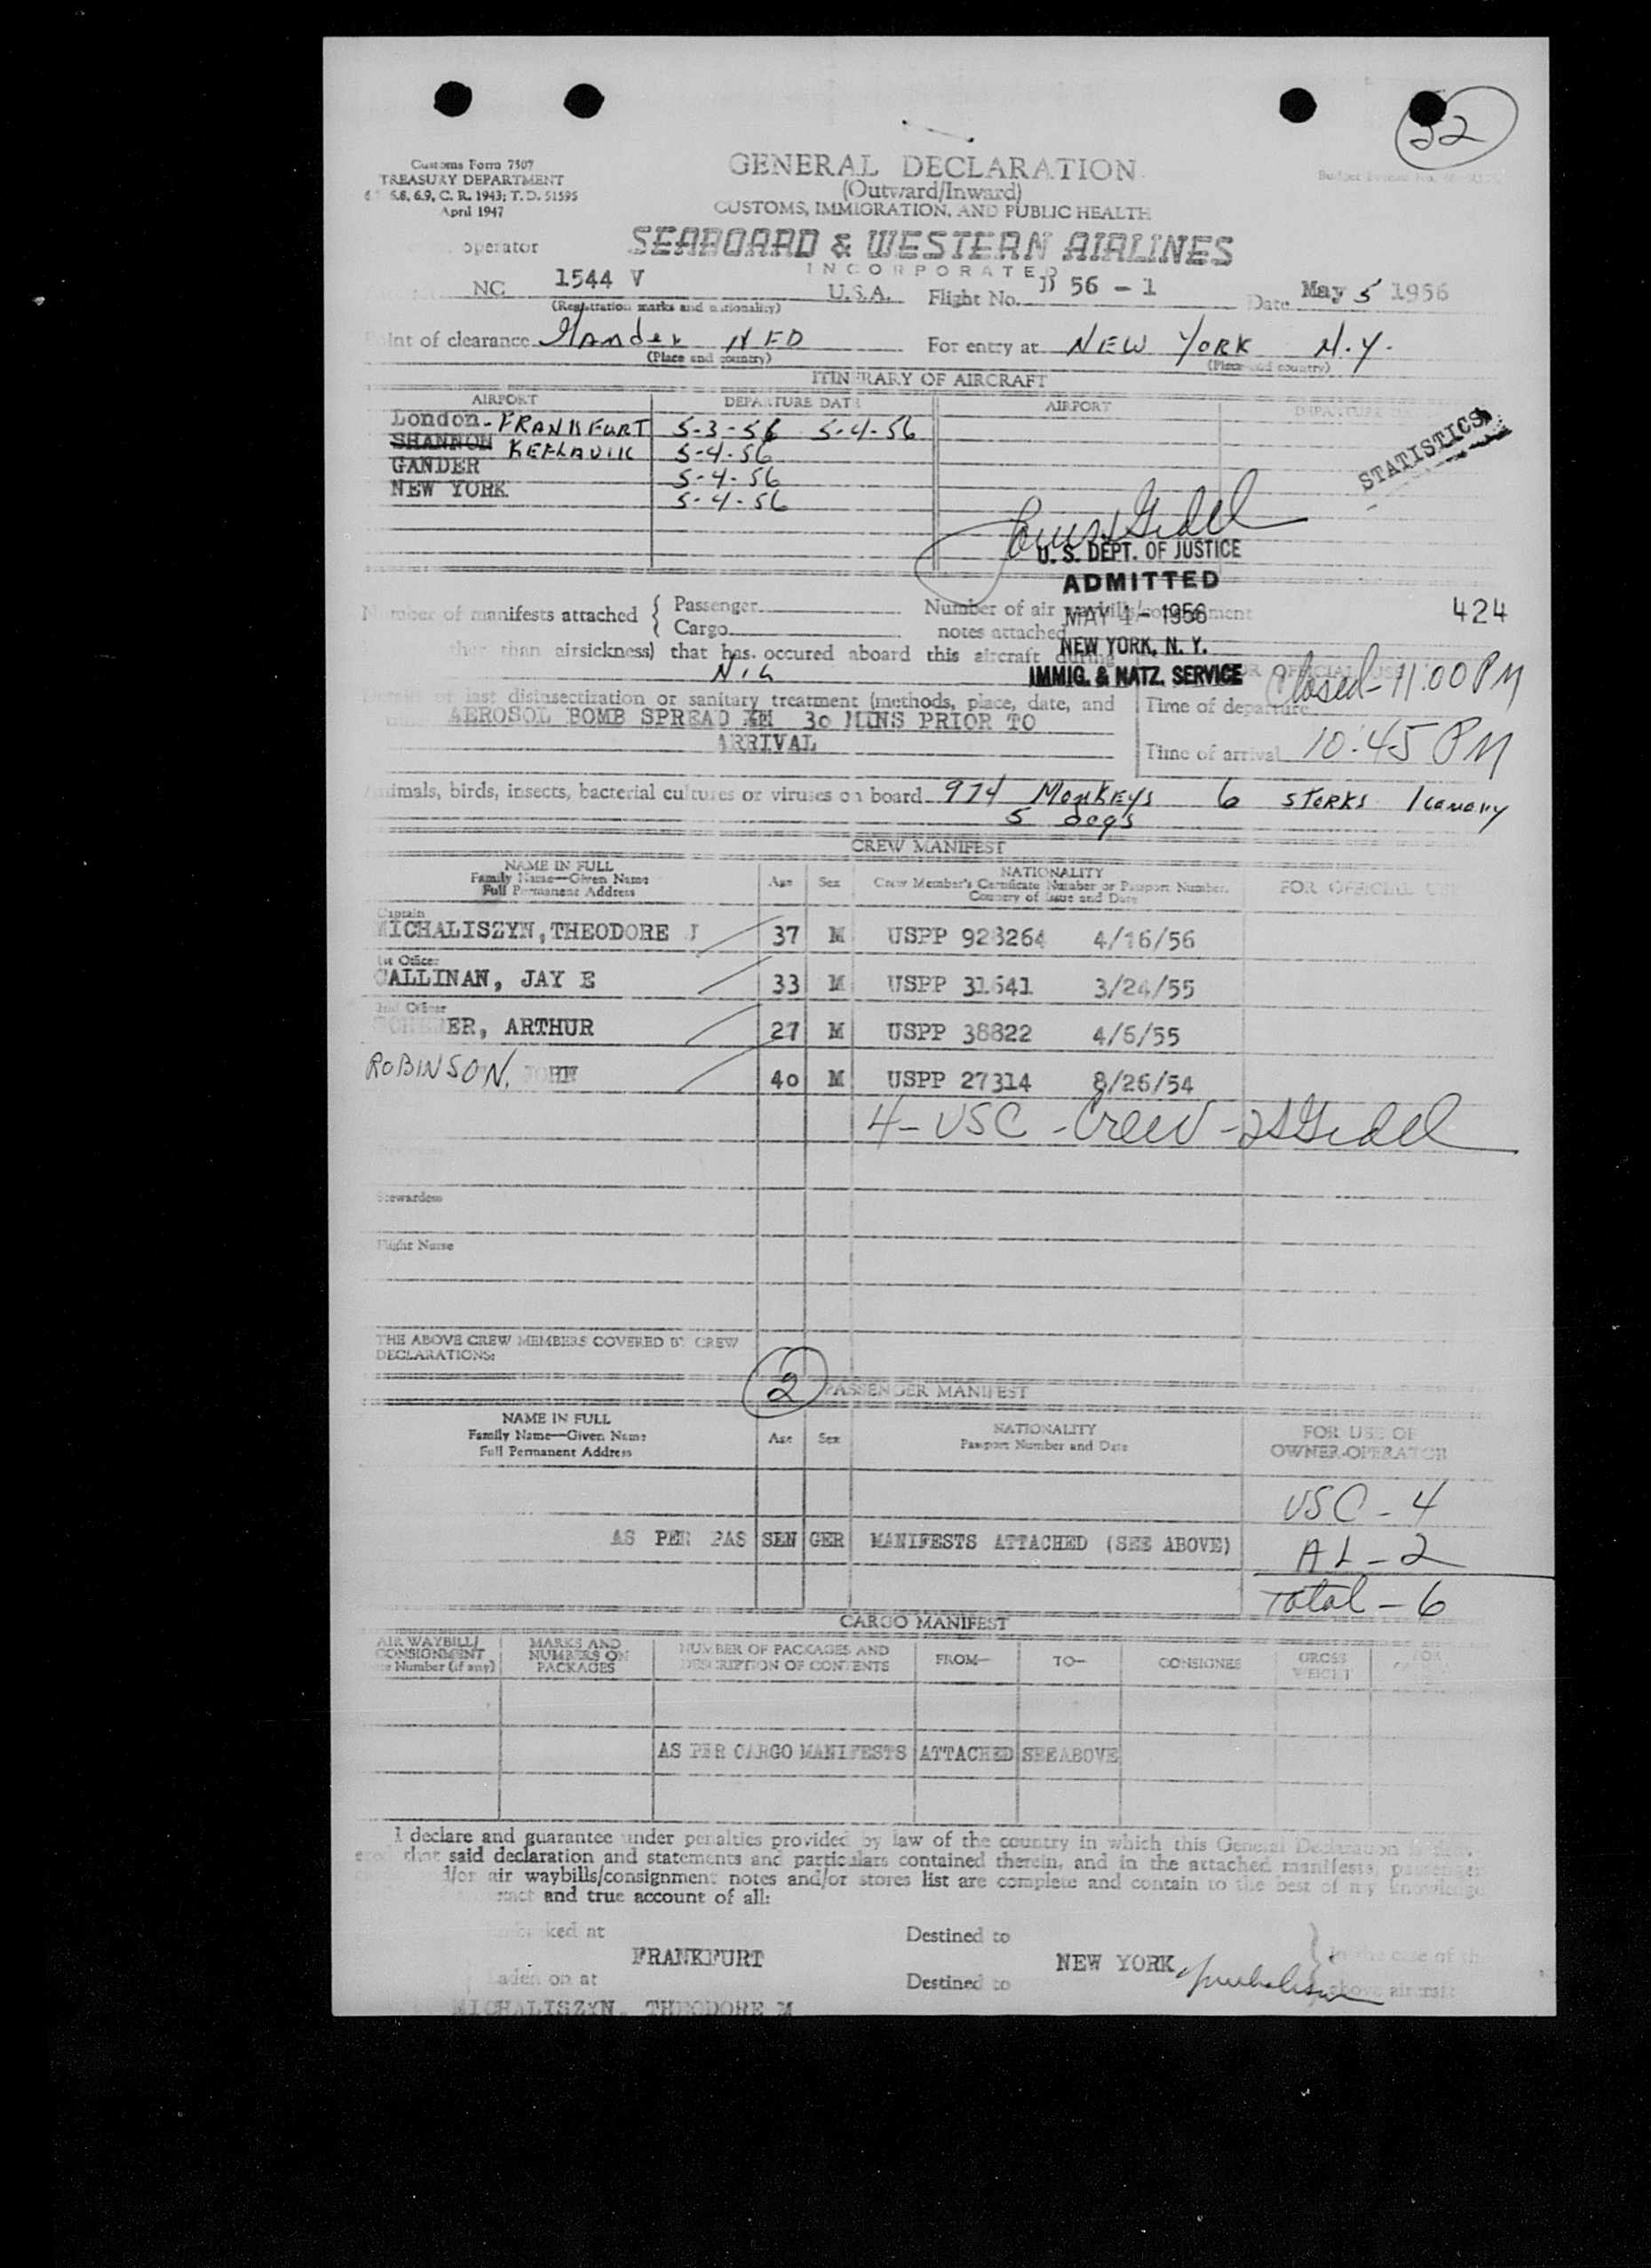 32
Customs Form 7507
TREASURY DEPARTMENT
6.8, 6.9, C. R. 1943; T. D. 51595
April 1947
GENERAL DECLARATION
(Outward/Inward)
CUSTOMS, IMMIGRATION, AND PUBLIC HEALTH
operator SEABOARD & WESTERN AIRLINES
INCORPORATED
NC 1544 V U.S.A. Flight No. D 56 - 1 Date May 5 1956
(Registration marks and nationality)
Point of clearance Gander NFD For entry at NEW YORK N.Y.
(Place and country) (Place and country)
ITINERARY OF AIRCRAFT
AIRPORT DEPARTURE DATE AIRPORT DEPARTURE
London - FRANKFURT 5-3-56 5-4-56
SHANNON KEFLAVIK 5-4-56
GANDER 5-4-56
NEW YORK 5-4-56
STATISTICS
U. S. DEPT. OF JUSTICE
ADMITTED
MAY 4 - 1956
NEW YORK, N. Y.
IMMIG. & NATZ. SERVICE
Number of manifests attached { Passenger Number of air 424
Cargo notes attached
than airsickness) that has occured aboard this aircraft during
NIL
Closed - 11:00 PM
Details of last disinsectization or sanitary treatment (methods, place, date, and Time of departure
AEROSOL BOMB SPREAD 30 MINS PRIOR TO
ARRIVAL
Time of arrival 10:45 PM
Animals, birds, insects, bacterial cultures or viruses on board 974 Monkeys 6 STORKS 1 canary
5 dogs
CREW MANIFEST
NAME IN FULL
Family Name—Given Name
Full Permanent Address
Age Sex
NATIONALITY
Crew Member's Certificate Number or Passport Number.
Country of Issue and Date
FOR OFFICIAL USE
Captain
MICHALISZYN, THEODORE J 37 M USPP 928264 4/16/56
1st Officer
CALLINAN, JAY E 33 M USPP 31641 3/24/55
2nd Officer
ER, ARTHUR 27 M USPP 38822 4/5/55
ROBINSON, JOHN 40 M USPP 27314 8/26/54
4 - USC - Crew -
Stewardess
Flight Nurse
THE ABOVE CREW MEMBERS COVERED BY CREW
DECLARATIONS:
2
PASSENGER MANIFEST
NAME IN FULL
Family Name—Given Name
Full Permanent Address
Age Sex
NATIONALITY
Passport Number and Date
FOR USE OF
OWNER-OPERATOR
USC - 4
AS PER PAS SEN GER MANIFESTS ATTACHED (SEE ABOVE)
AL - 2
Total - 6
CARGO MANIFEST
AIR WAYBILL/
CONSIGNMENT
Number (if any)
MARKS AND
NUMBERS ON
PACKAGES
NUMBER OF PACKAGES AND
DESCRIPTION OF CONTENTS
FROM— TO— CONSIGNEE
GROSS
WEIGHT
FOR
AS PER CARGO MANIFESTS ATTACHED SEE ABOVE
I declare and guarantee under penalties provided by law of the country in which this General Declaration is
that said declaration and statements and particulars contained therein, and in the attached manifests, passenger
d/or air waybills/consignment notes and/or stores list are complete and contain to the best of my knowledge
and true account of all:
ked at FRANKFURT Destined to NEW YORK In the case of the
Laden on at Destined to above aircraft
MICHALISZYN, THEODORE M